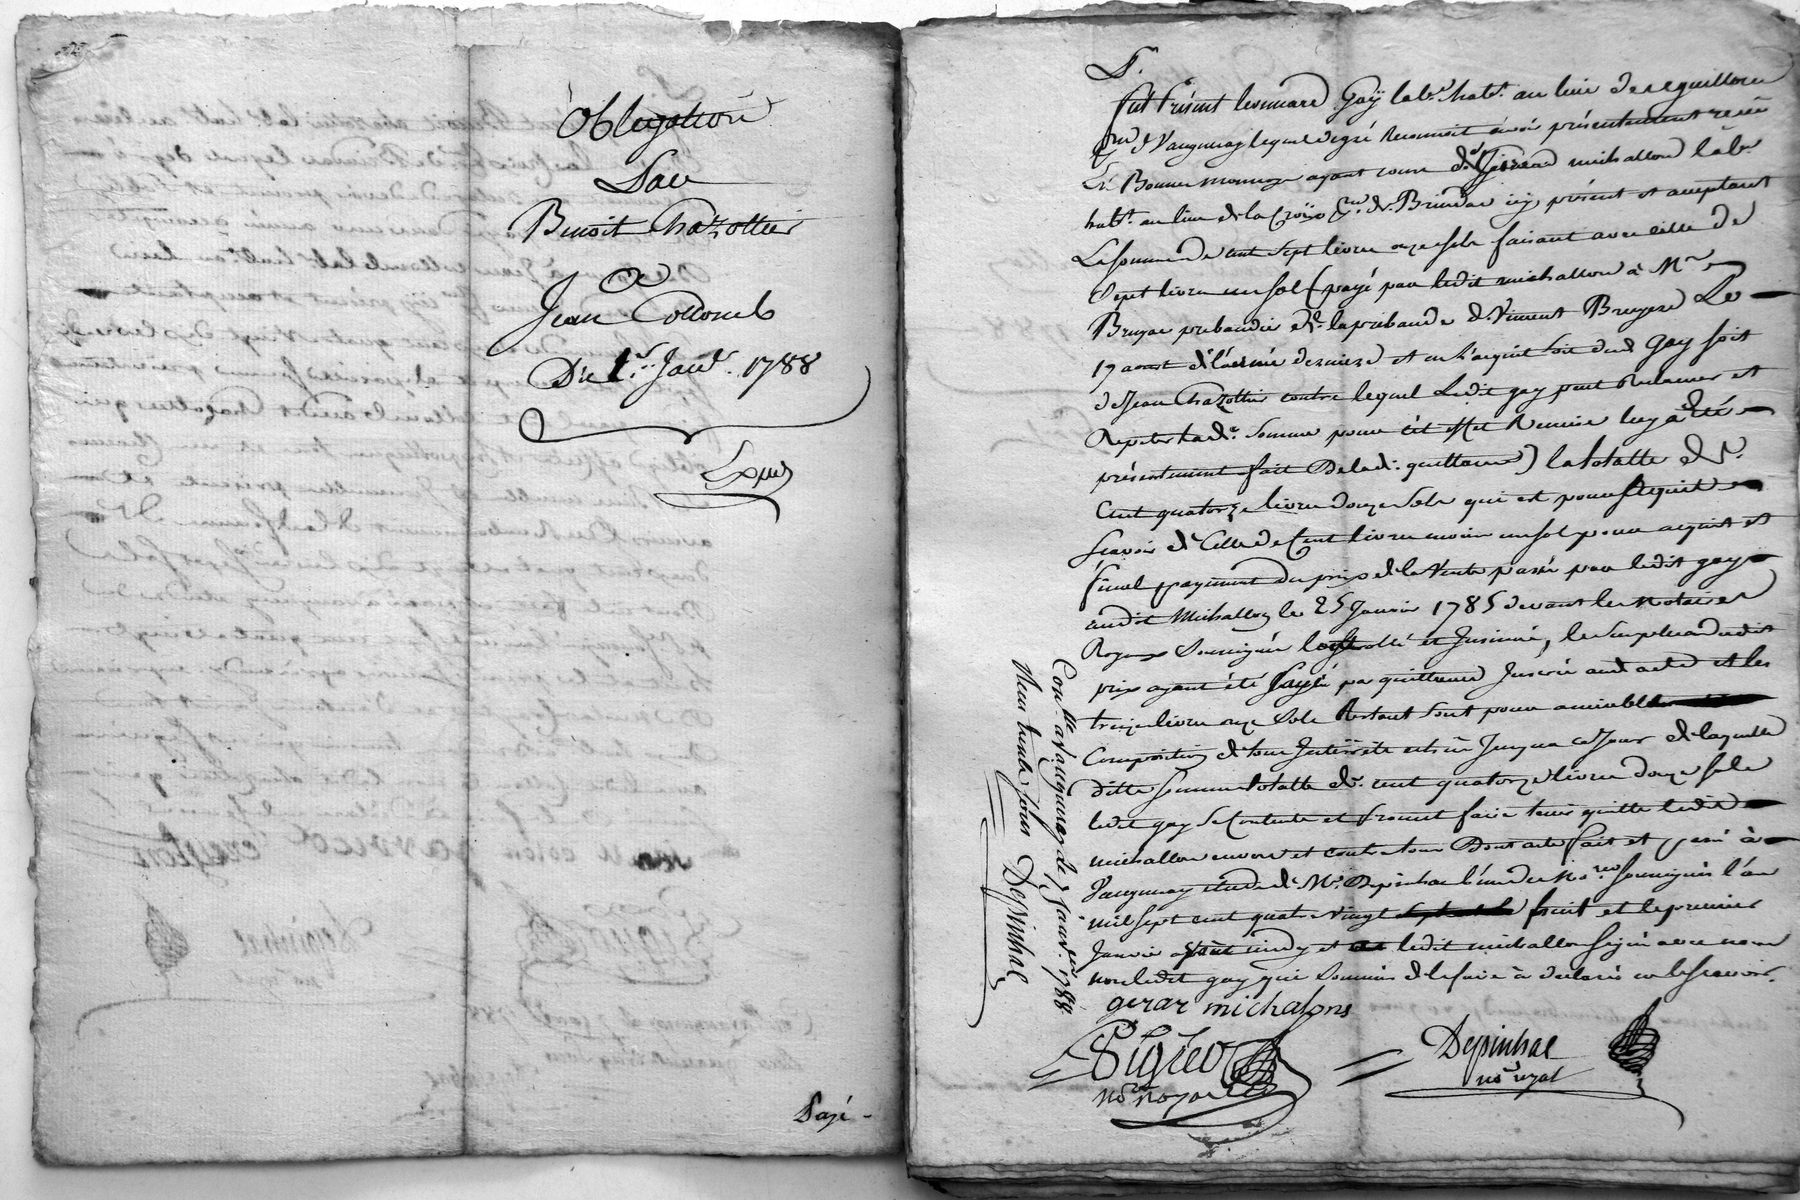 Obligation
Par
Benoit Chazottier
a
Jean Collomb
Du 1.er Janv.r 1788
Expé
Payé -
Fut Présent leonnard Gaÿ lab.r hab.t au lieu de
de Vaugneray lequel de gré Reconnoit avoir présentement receu
En Bonne monnoye ayant cours de Gerard michallon lab.r
hab.t au lieu de la Croix de Brindas icy présent et acceptant
La somme de cent sept livres onze sols faisant avec celle de
Sept livres un sol (payé par ledit michallon à M.r
Bruyas prebandier de la prebande de Vincent Bruyere Le
19 aoust de l'année derniere et en l'acquit soit dud. Gay soit
de Jean Chazottier contre lequel Ledit gay peut Reclamer et
Repeter lad.e Somme pour cet effet Remise luy a été
présentement fait De lad.e quittance) la totalle de
Cent quatorze livres douze sols qui est pour
Sçavoir de Celle de Cent livres moins un sol pour acquit et
final payement du prix de la Vente passée par ledit gay
audit Michallon le 25 Janvier 1785 devant les Notaires
Royaux Soussignés controllé et Insinué, le Surplus dudit
prix ayant été payé par quittance Inserée audit acte et les
treize livres onze sols Restant sont pour amiable
Composition de tous Interrêts jusqu'a ce Jour de laquelle
ditte somme totalle de cent quatorze livres douze sols
ledit gay se Contente et Promet faire tenir quitte ledit
michallon envers et contre tous Dont acte fait et passé à
Vaugneray étude de M.e Depinhac l'un des No.res soussignés l'an
mil sept cent quatre vingt huit et le premier
Janvier après midy et ledit michallon signé avec nous
non ledit gay qui Sommés de le faire à declaré ne le sçavoir.
gerar michalons
Pigiev
no.re royal
Depinhac
no.re royal
Con.llé a Vaugneray le 7 janv.er 1788
Reçu trente sous Depinhac